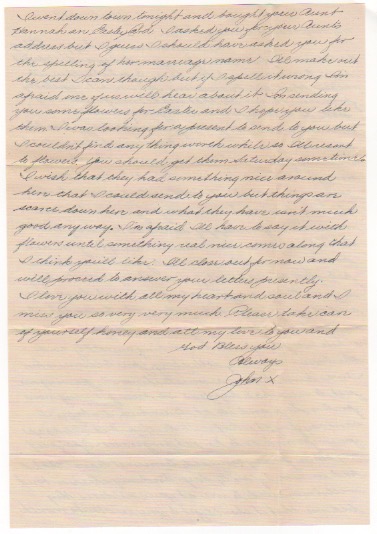 I went down town tonight and bought your Aunt
Hannah an Easter Card. I asked you for your Aunt's
address but I guess I should have asked you for
the spelling of her marriage name. I'll make out
the best I can though but if I spell it wrong I'm
afraid me you will hear about it. I'm sending
you some flowers for Easter and I hope you like
them. I was looking for a present to send to you but
I couldn't find any thing worth while so I'll resort
to flowers. You should get them Saturday sometime.
I wish that they had something nice around
here that I could send to you but things are
scarce down here and what they have isn't much
good any way. I'm afraid I'll have to say it with
flowers until something real nice comes along that
I think you'll like. I'll close out for now and
will proceed to answer your letters presently.
I love you with all my heart and soul and I
miss you so very very much. Please take care
of yourself honey and all my love to you and
God Bless you
Always
John X